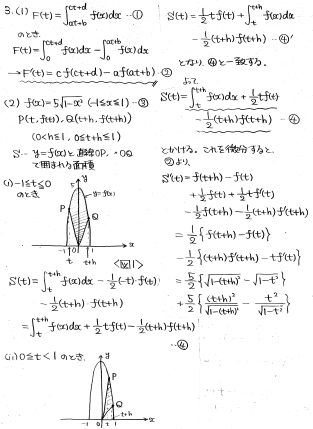 3.(1) F(t)=∫_{at+b}^{ct+d} f(x)dx …①
のとき
F(t)=∫_0^{ct+d} f(x)dx −∫_0^{at+b} f(x)dx
→ F'(t)=cf(ct+d)−af(at+b) …②
(2) f(x)=5√1−x² (−1≤x≤1) …③
P(t, f(t)), Q(t+h, f(t+h))
(0<h≤1, 0≤t+h≤1)
S… y=f(x)と 直線OP, OQ
で囲まれる面積
(i) −1≤t≤0
のとき
y
5
y=f(x)
P
Q
−1 0 1 x
t t+h
<図1>
S(t)=∫_t^{t+h} f(x)dx −1/2(−t)·f(t)
−1/2(t+h)·f(t+h)
=∫_t^{t+h} f(x)dx +1/2 t f(t) −1/2(t+h)f(t+h)
…④
(ii) 0≤t<1 のとき
y
P
Q
t+h
−1 0 t 1 x
S(t)=1/2 t f(t)+∫_t^{t+h} f(x)dx
−1/2(t+h)f(t+h) …④'
となり ④と一致する。
よって
S(t)=∫_t^{t+h} f(x)dx +1/2 t f(t)
−1/2(t+h)f(t+h) …④
とかける。これを微分すると
②より、
S'(t)=f(t+h)−f(t)
+1/2 f(t)+1/2 t f'(t)
−1/2 f(t+h)−1/2(t+h)f'(t+h)
=1/2{f(t+h)−f(t)}
−1/2{(t+h)f'(t+h)−t f'(t)}
=5/2{√1−(t+h)² −√1−t²}
+5/2{(t+h)²/√1−(t+h)² − t²/√1−t²}